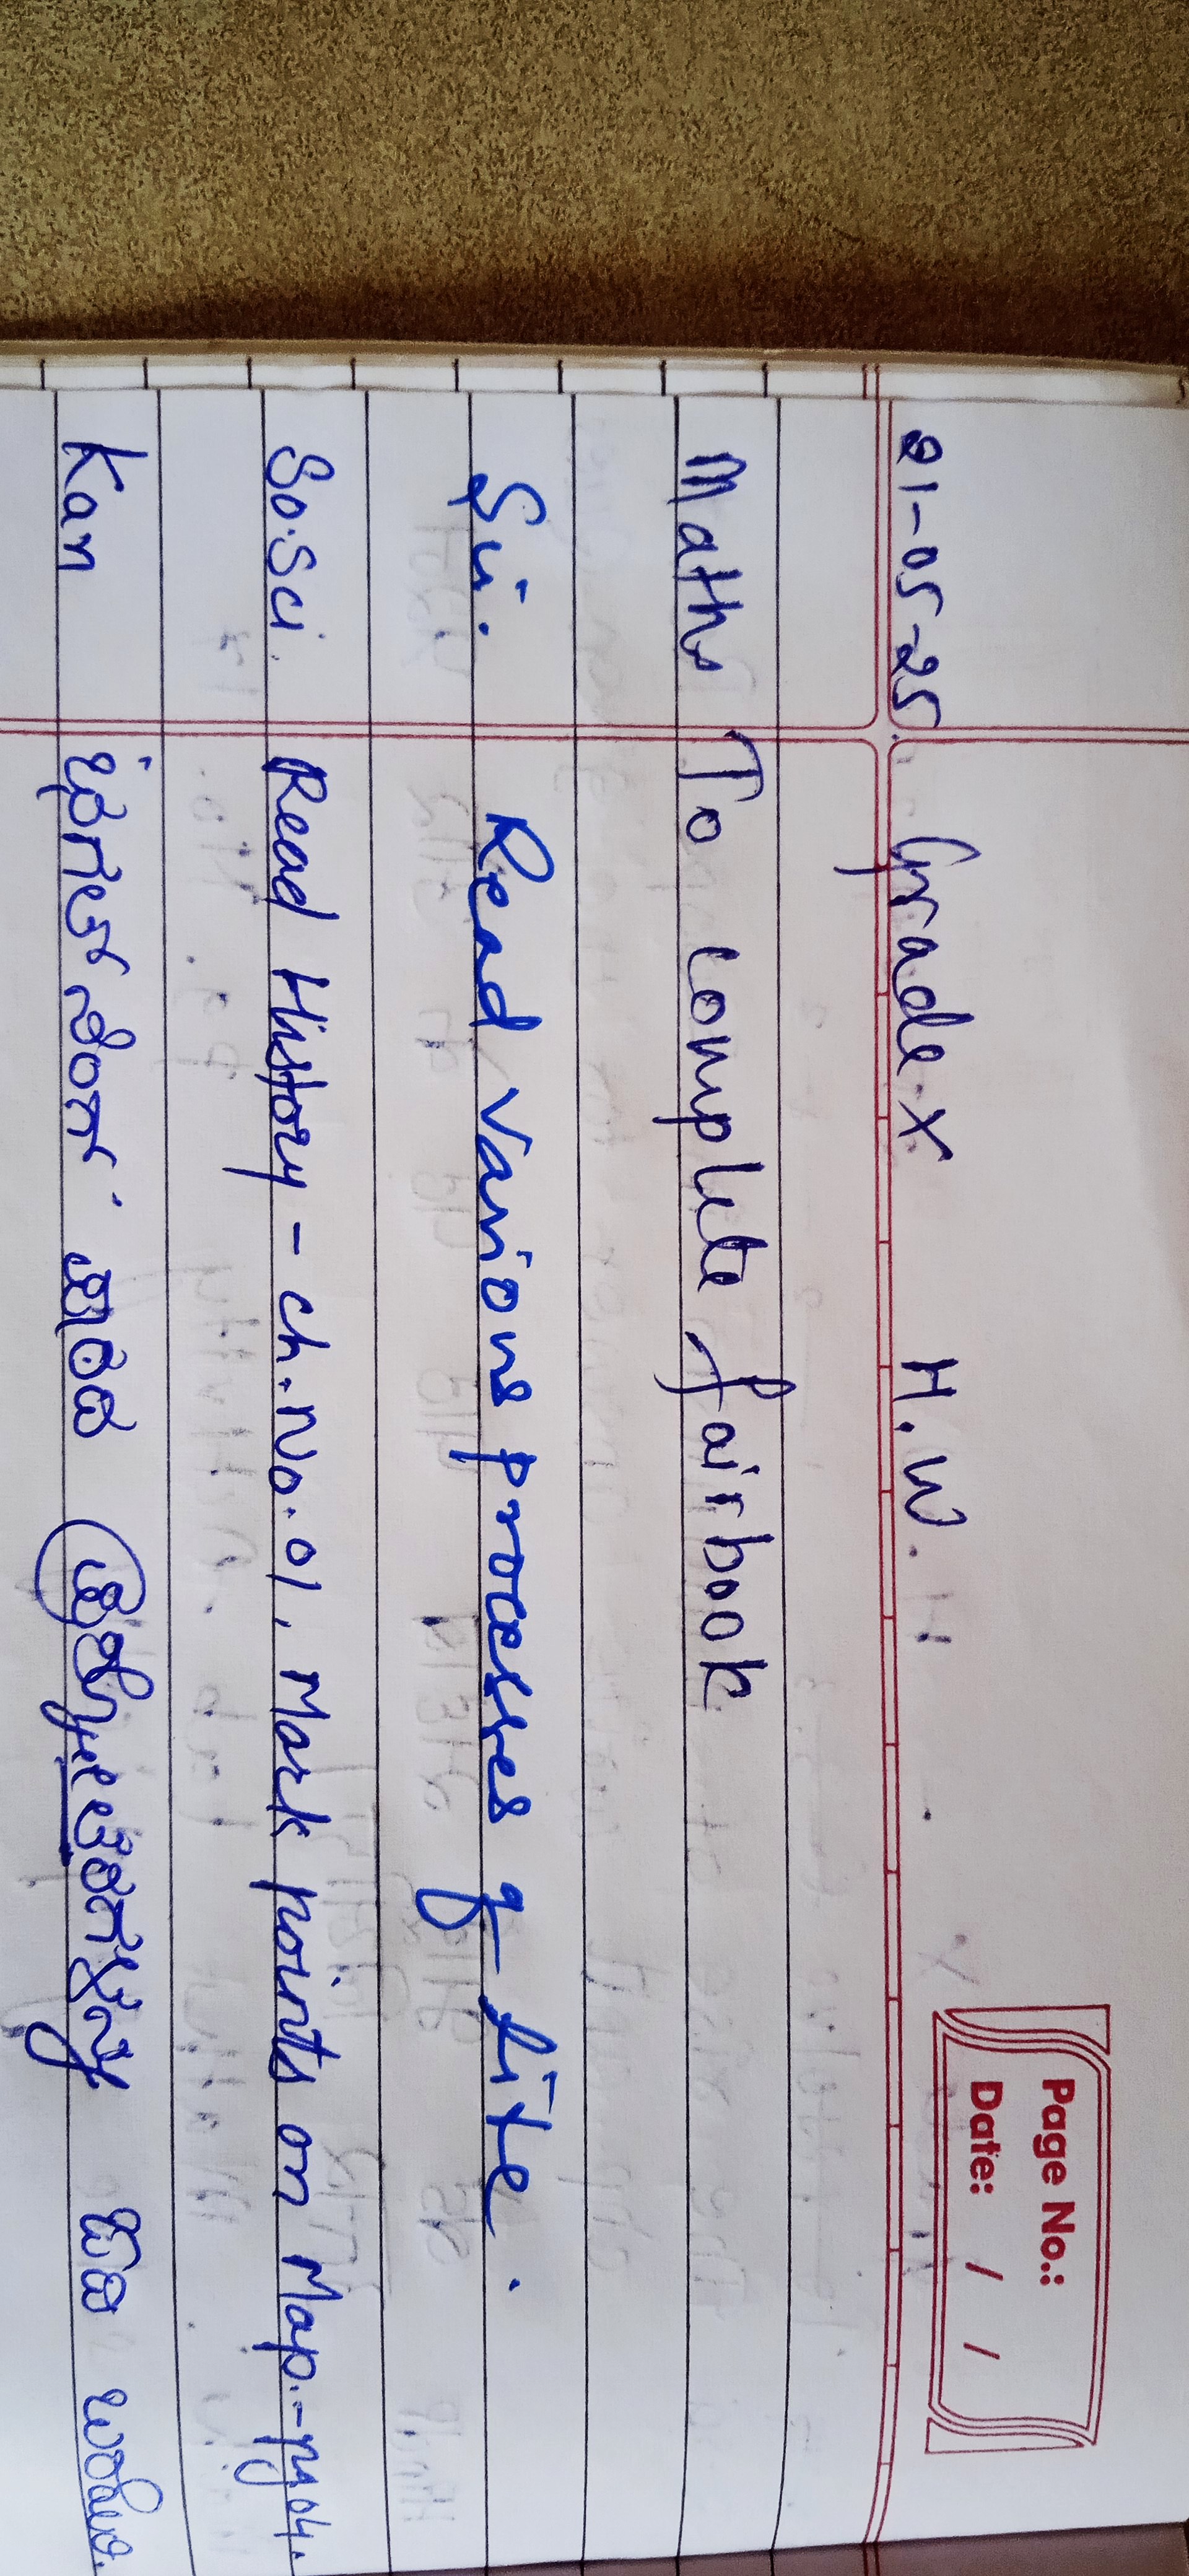 Page No.:
Date: / /
21-05-25 Grade-X H.W.
Maths To complete fairbook
Sci. Read Various processes of life.
So.Sci. Read History - ch.No.01, Mark points on Map.-pg 04.
Kan ಪಾಠದ ಬರೆಯಿರಿ.